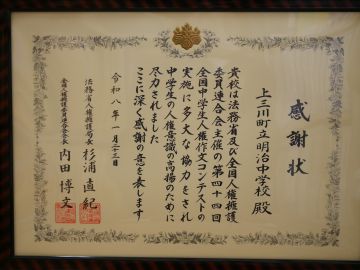 感謝状
上三川町立明治中学校 殿
貴校は法務省及び全国人権擁護
委員連合会主催の第四十四回
全国中学生人権作文コンテストの
実施に多大な協力をされ
中学生の人権意識の高揚のために
尽力されました
ここに深く感謝の意を表します
令和八年一月二十三日
法務省人権擁護局長 杉浦直紀
全国人権擁護委員連合会会長 内田博文